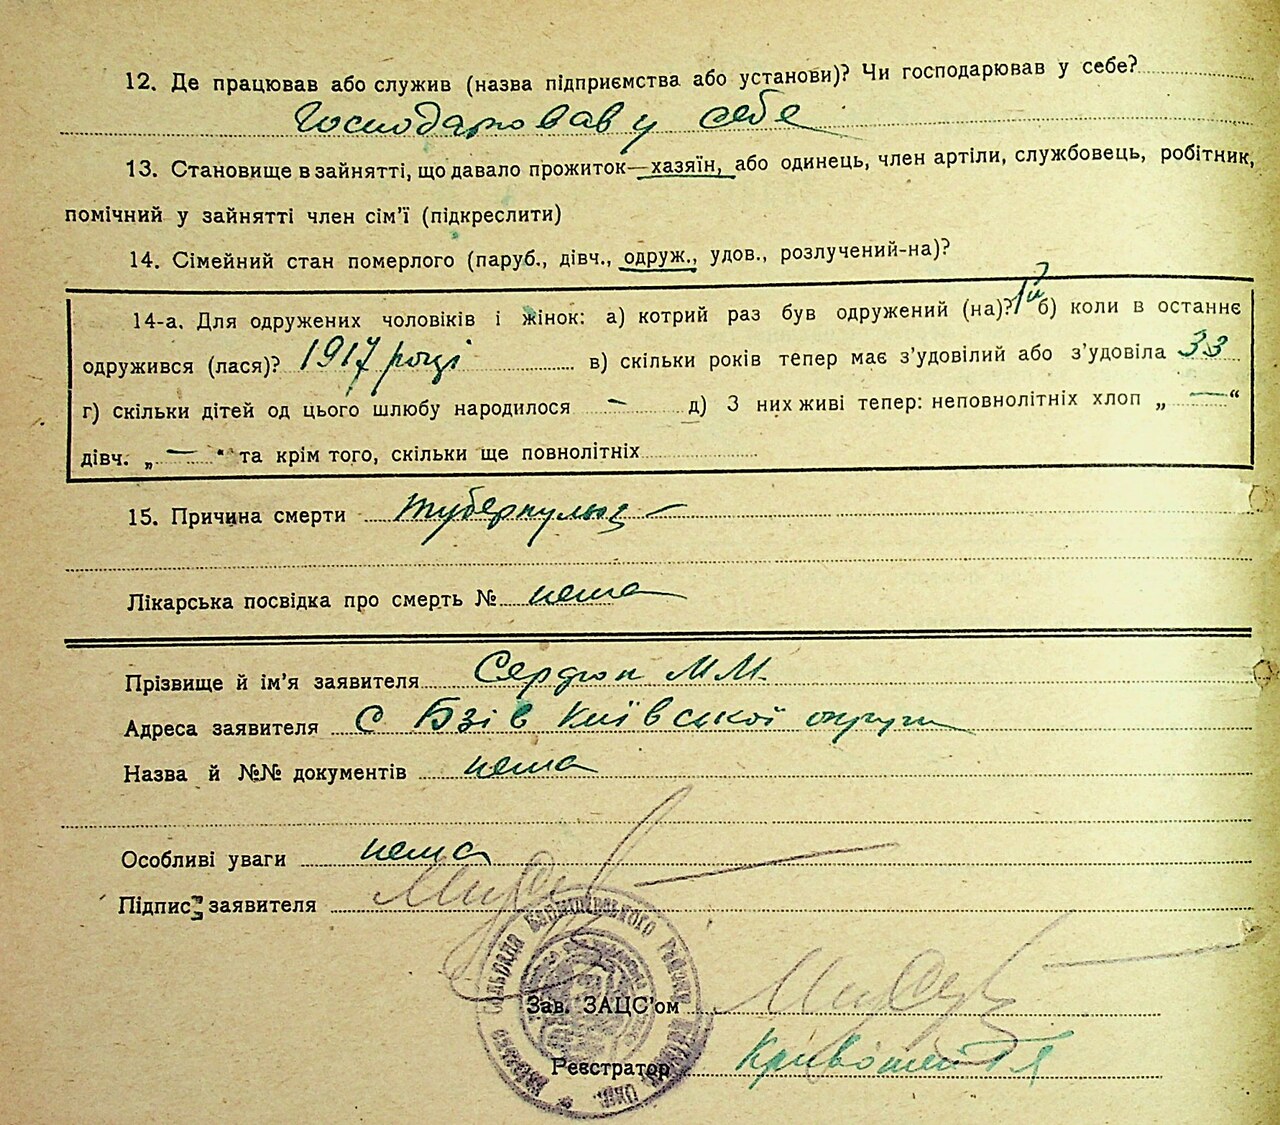 12. Де працював або служив (назва підприємства або установи)? Чи господарював у себе?
Господарював у себе
13. Становище в зайнятті, що давало прожиток—хазяїн, або одинець, член артілі, службовець, робітник,
помічний у зайнятті член сім'ї (підкреслити)
14. Сімейний стан померлого (паруб., дівч., одруж., удов., розлучений-на)?
14-а. Для одружених чоловіків і жінок: а) котрий раз був одружений (на)? 1й б) коли в останнє
одружився (лася)? 1917 році в) скільки років тепер має з'удовілий або з'удовіла 33
г) скільки дітей од цього шлюбу народилося — д) З них живі тепер: неповнолітніх хлоп „ — “
дівч. „ — “ та крім того, скільки ще повнолітніх
15. Причина смерти туберкульоз
Лікарська посвідка про смерть № нема
Прізвище й ім'я заявителя Сердюк М М.
Адреса заявителя С Бзів Київської округи
Назва й №№ документів нема
Особливі уваги нема
Підпис заявителя
Зав. ЗАЦС'ом
Реєстратор